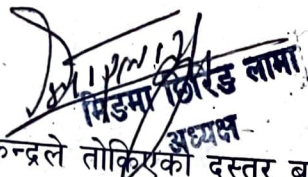 मिङमा छिरिङ लामा
अध्यक्ष
न्द्रले तोकिएको दस्तुर ब